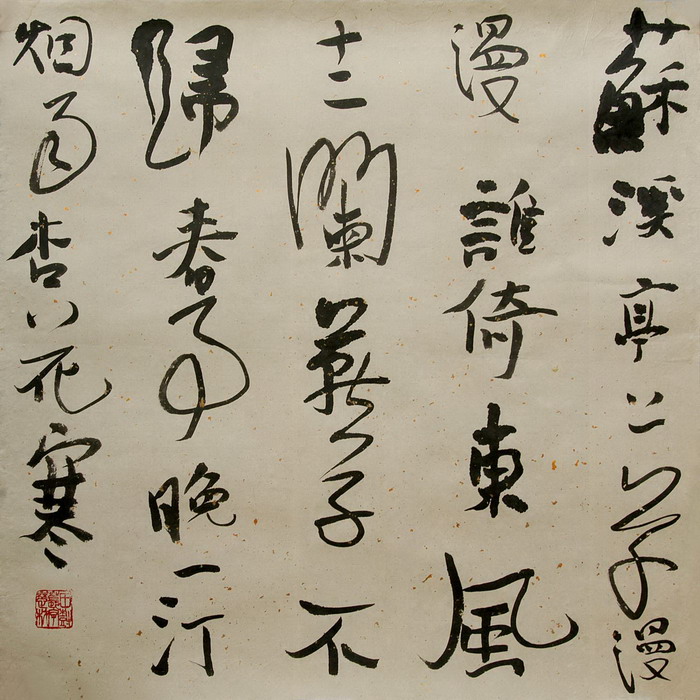 蘇溪亭上草漫
漫誰倚東風
十二闌燕子不
歸春事晚一汀
烟雨杏花寒